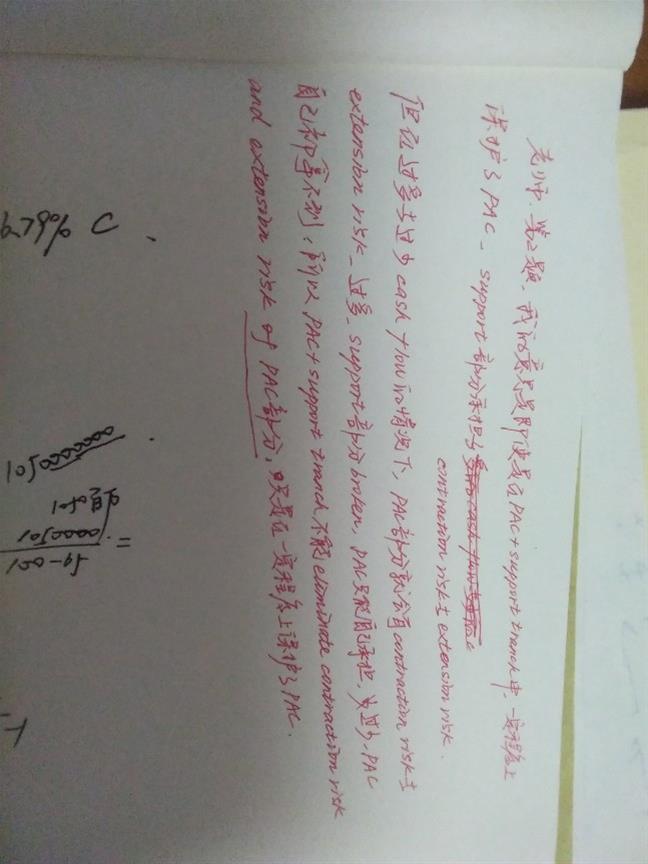 老师，第2题，我的意思是即使是在PAC+support tranch中，一定程度上
保护了PAC，support部分承担了
contraction risk与extension risk.
但在过多与过少cash flow的情况下，PAC部分就会有contraction risk与
extension risk，过多，support部分broken，PAC只能自己承担，过少，PAC
自己都拿不到；所以PAC+support tranch不能eliminate contraction risk
and extension risk of PAC部分，只是在一定程度上保护了PAC.
6.79% C